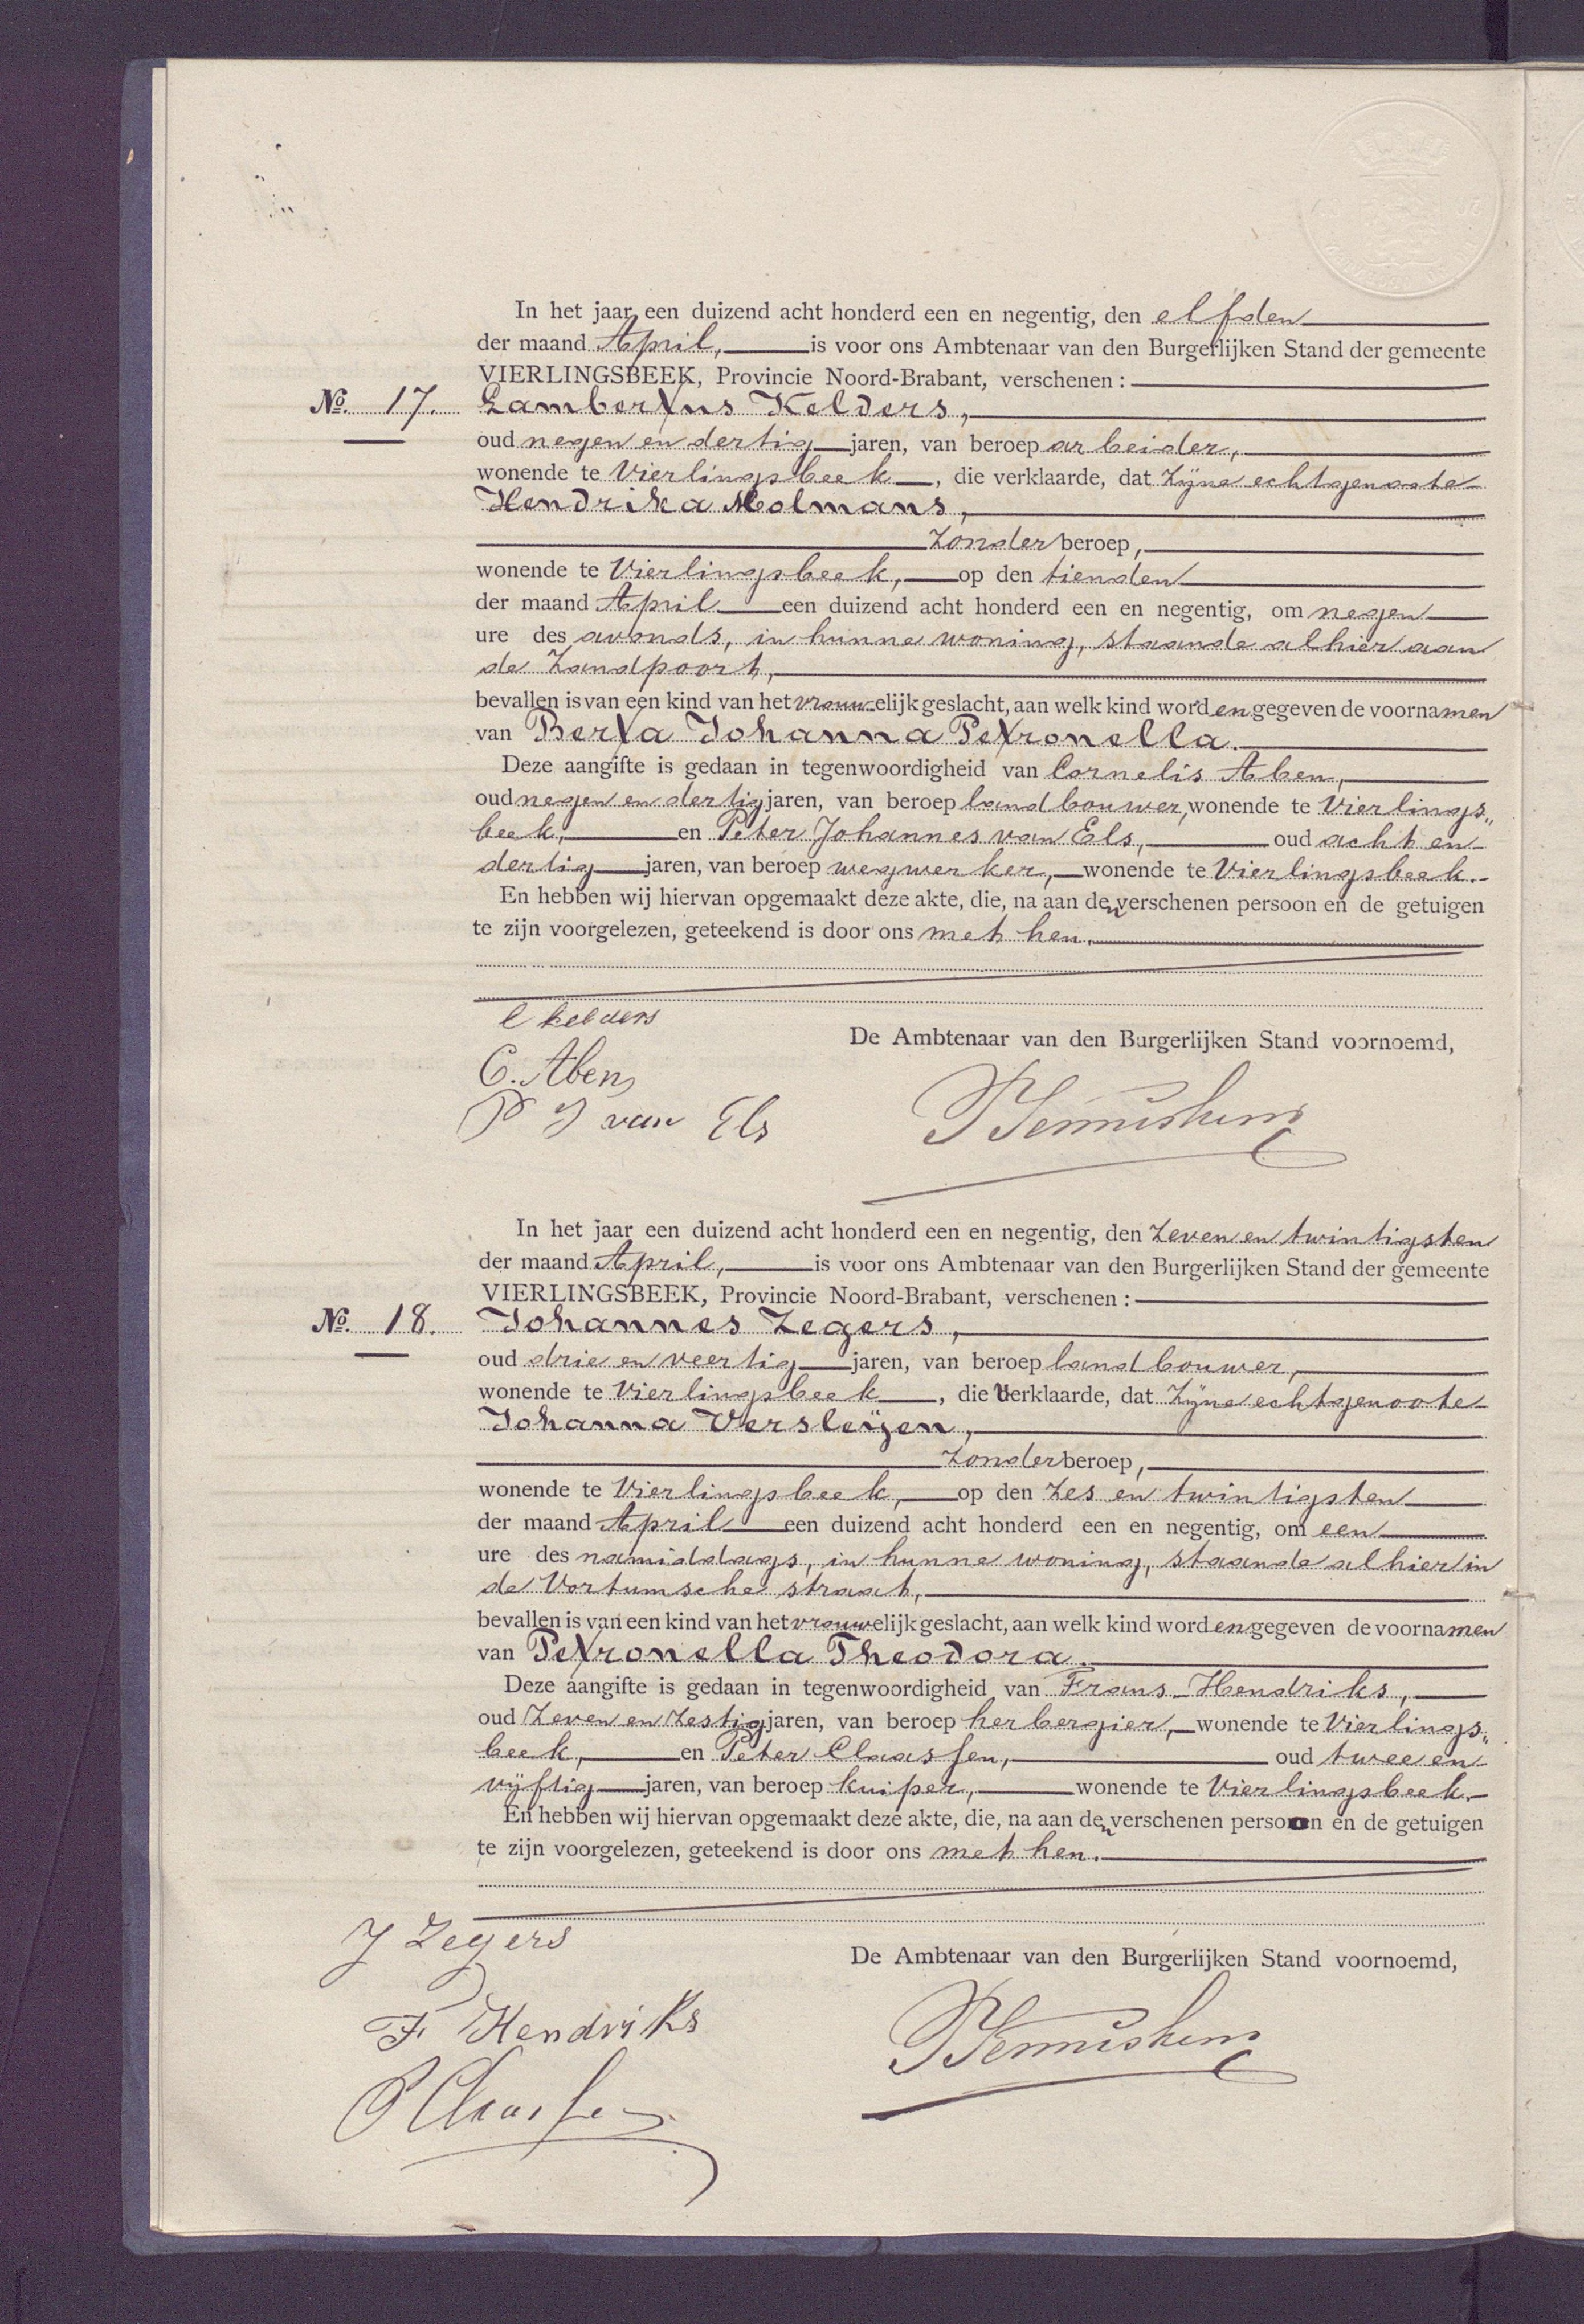 In het jaar een duizend acht honderd een en negentig, den elfden
der maand April, is voor ons Ambtenaar van den Burgerlijken Stand der gemeente
VIERLINGSBEEK, Provincie Noord-Brabant, verschenen :
No. 17. Lambertus Kelders,
oud negen en dertig jaren, van beroep arbeider,
wonende te Vierlingsbeek, die verklaarde, dat Zijne echtgenoote
Hendrika Molmans,
Zonder beroep,
wonende te Vierlingsbeek, op den tienden
der maand April een duizend acht honderd een en negentig, om negen
ure des avonds, in hunne woning, staande alhier aan
de Zandpoort,
bevallen is van een kind van het vrouwelijk geslacht, aan welk kind worden gegeven de voornamen
van Berta Johanna Petronella.
Deze aangifte is gedaan in tegenwoordigheid van Cornelis Aben,
oud negen en dertig jaren, van beroep landbouwer, wonende te Vierlings„
beek, en Peter Johannes van Els, oud acht en
dertig jaren, van beroep wegwerker, wonende te Vierlingsbeek.
En hebben wij hiervan opgemaakt deze akte, die, na aan den verschenen persoon en de getuigen
te zijn voorgelezen, geteekend is door ons met hen.
l kelders
De Ambtenaar van den Burgerlijken Stand voornoemd,
C. Aben
P J van Els
In het jaar een duizend acht honderd een en negentig, den Zeven en twintigsten
der maand April, is voor ons Ambtenaar van den Burgerlijken Stand der gemeente
VIERLINGSBEEK, Provincie Noord-Brabant, verschenen :
No. 18. Johannes Zegers,
oud drie en veertig jaren, van beroep landbouwer,
wonende te Vierlingsbeek, die verklaarde, dat Zijne echtgenoote
Johanna Versleijen,
Zonder beroep,
wonende te Vierlingsbeek, op den Zes en twintigsten
der maand April een duizend acht honderd een en negentig, om een
ure des namiddags, in hunne woning, staande alhier in
de Vortumsche straat,
bevallen is van een kind van het vrouwelijk geslacht, aan welk kind worden gegeven de voornamen
van Petronella Theodora.
Deze aangifte is gedaan in tegenwoordigheid van Frans Hendriks,
oud Zeven en Zestig jaren, van beroep herbergier, wonende te Vierlings„
beek, en Peter Claassen, oud twee en
vijftig jaren, van beroep kuiper, wonende te Vierlingsbeek.
En hebben wij hiervan opgemaakt deze akte, die, na aan den verschenen persoon en de getuigen
te zijn voorgelezen, geteekend is door ons met hen.
J Zegers
De Ambtenaar van den Burgerlijken Stand voornoemd,
F Hendriks
P Claassen